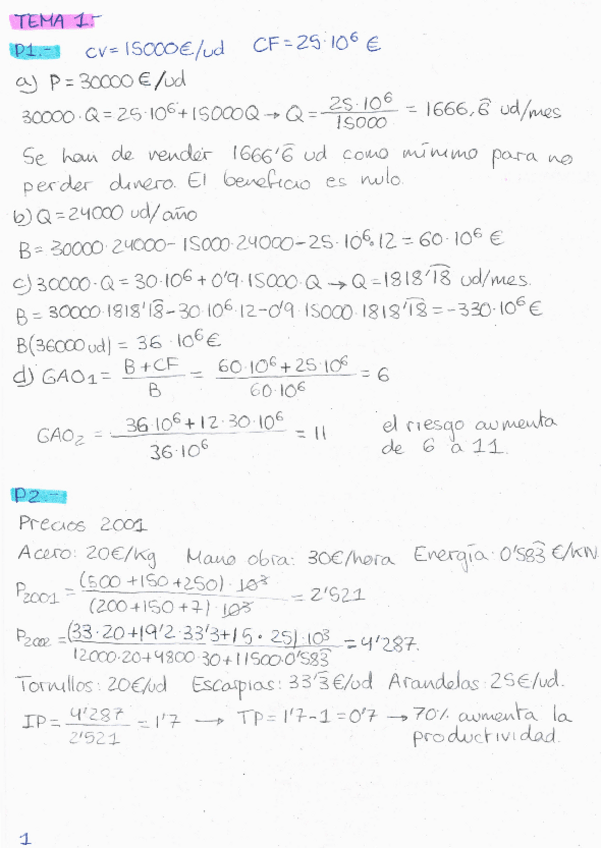 TEMA 1.-
P1.- CV=15000€/ud CF=25·10⁶ €
a) P=30000€/ud
30000·Q=25·10⁶+15000Q→Q=25·10⁶/15000=1666,6̂ ud/mes
Se han de vender 1666'6̂ ud como mínimo para no
perder dinero. El beneficio es nulo.
b) Q=24000 ud/año
B=30000·24000-15000·24000-25·10⁶·12=60·10⁶ €
c) 30000·Q=30·10⁶+0'9·15000·Q→Q=1818'18̂ ud/mes.
B=30000·1818'18̂-30·10⁶·12-0'9·15000·1818'18̂=-330·10⁶€
B(36000ud)=36·10⁶€
d) GAO₁=B+CF/B=60·10⁶+25·10⁶/60·10⁶=6
GAO₂=36·10⁶+12·30·10⁶/36·10⁶=11 el riesgo aumenta
de 6 a 11.
P2.-
Precios 2001
Acero: 20€/kg Mano obra: 30€/hora Energía: 0'583̂ €/KN
P2001=(500+150+250)·10³/(200+150+7)·10³=2'521
P2002=(33·20+19'2·33'3+15·25)·10³/12000·20+4800·30+11500·0'583̂=4'287.
Tornillos: 20€/ud Escarpias: 33'3̂€/ud Arandelas: 25€/ud.
IP=4'287/2'521=1'7→TP=1'7-1=0'7→70% aumenta la
productividad.
1